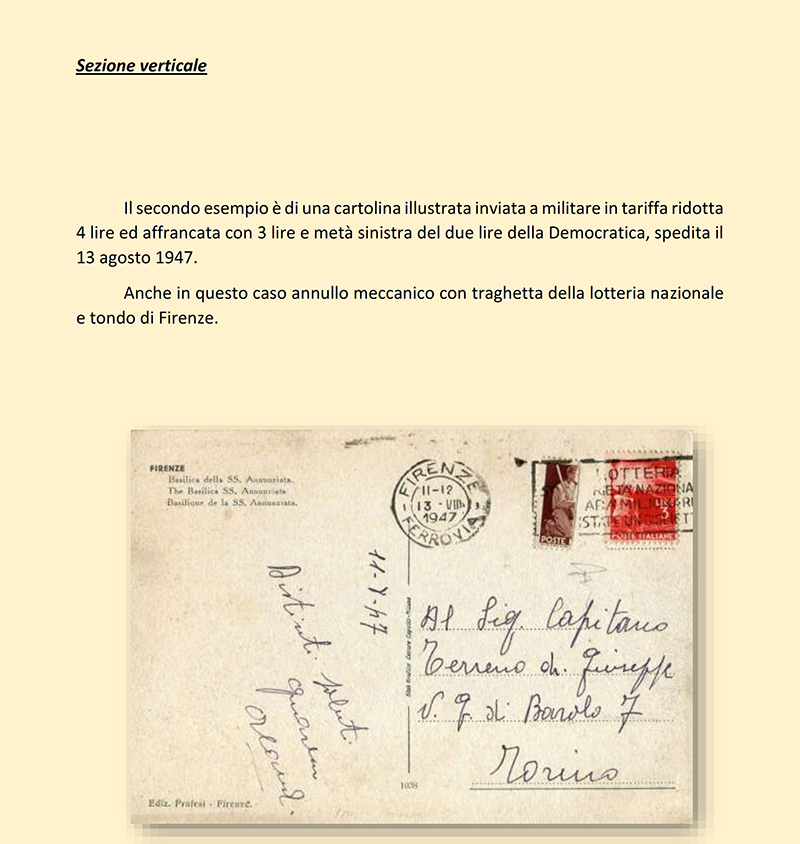 Sezione verticale
Il secondo esempio è di una cartolina illustrata inviata a militare in tariffa ridotta
4 lire ed affrancata con 3 lire e metà sinistra del due lire della Democratica, spedita il
13 agosto 1947.
Anche in questo caso annullo meccanico con traghetta della lotteria nazionale
e tondo di Firenze.
FIRENZE
Basilica della SS. Annunziata.
The Basilica SS. Annunziata
Basilique de la SS. Annunziata.
FIRENZE
11-12
13 - VIII
1947
FERROVIA
LOTTERIA
POSTE
3
POSTE ITALIANE
Distinti
Al Sig. Capitano
Terreno dr. Giuseppe
V. G. di Barolo 7
Torino
1038
Ediz. Pratesi - Firenze.